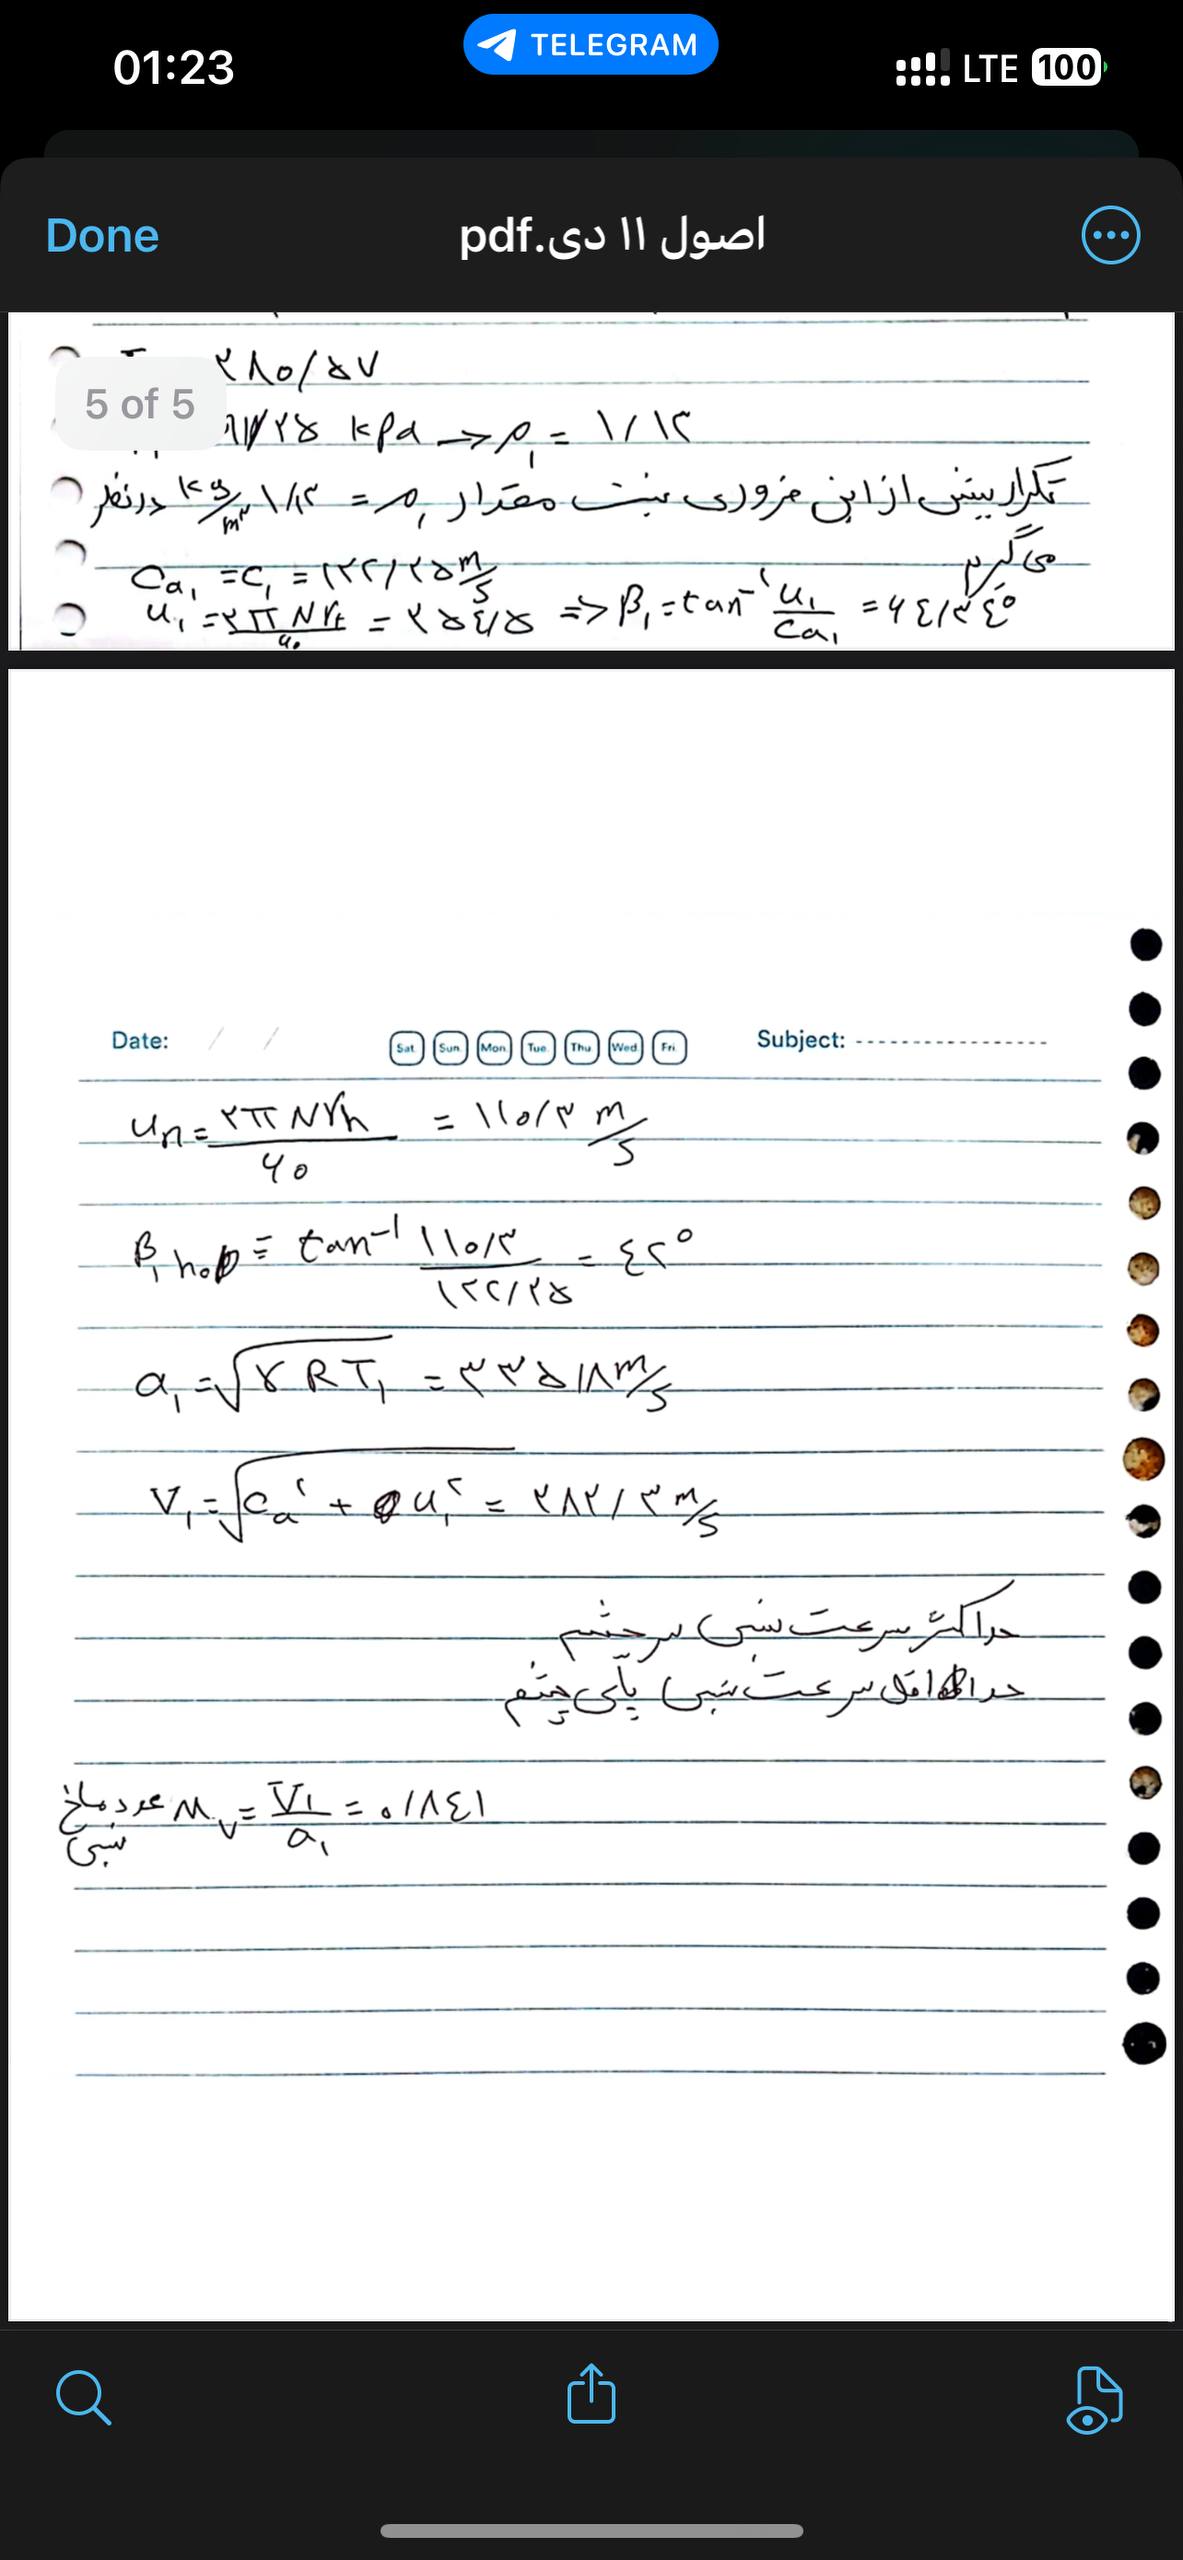 01:23
TELEGRAM
LTE 100
Done
اصول ۱۱ دی.pdf
5 of 5
۲۸۰/۵۷
۲۵ kPa → ρ₁ = ۱/۱۳
تکرار بیش از این ضروری نیست مقدار ρ₁ = ۱/۱۳ kg/m³ در نظر
می گیریم
Ca₁ = C₁ = ۱۲۲/۲۵ m/s
u₁ = ۲πNrt/۶۰ = ۲۵۴/۵ => β₁ = tan⁻¹ u₁/Ca₁ = ۶۴/۳۴°
Date: / /
Sat. Sun. Mon. Tue. Thu. Wed. Fri.
Subject:
uh = ۲πNrh/۶۰ = ۱۱۰/۳ m/s
β₁ hob = tan⁻¹ ۱۱۰/۳ / ۱۲۲/۲۵ = ۴۲°
a₁ = √γRT₁ = ۳۳۵/۸ m/s
V₁ = √Ca² + u₁² = ۲۸۲/۳ m/s
حداکثر سرعت نسبی سر چشم
حداقل سرعت نسبی پای چشم
عدد ماخ Mv = V₁/a₁ = ۰/۸۴۱
نسبی